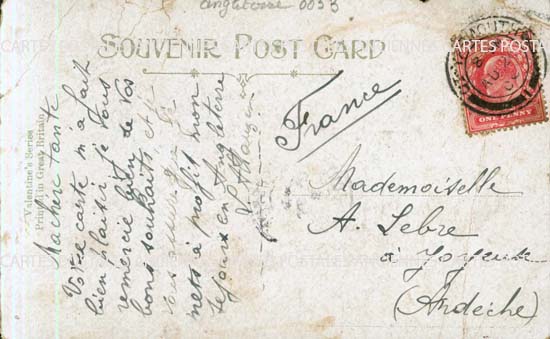 angleterre 0033
SOUVENIR POST CARD
Valentine's Series
Printed in Great Britain
Ma chère Tante
Votre carte m'a fait
bien plaisir je vous
remercie bien de vos
bons souhaits, et
vous assure que je
mets à profit mon
séjour en Angleterre
France
ONE PENNY
Mademoiselle
A. Lebre
à Joyeuse
(Ardèche)
ARTES POSTA